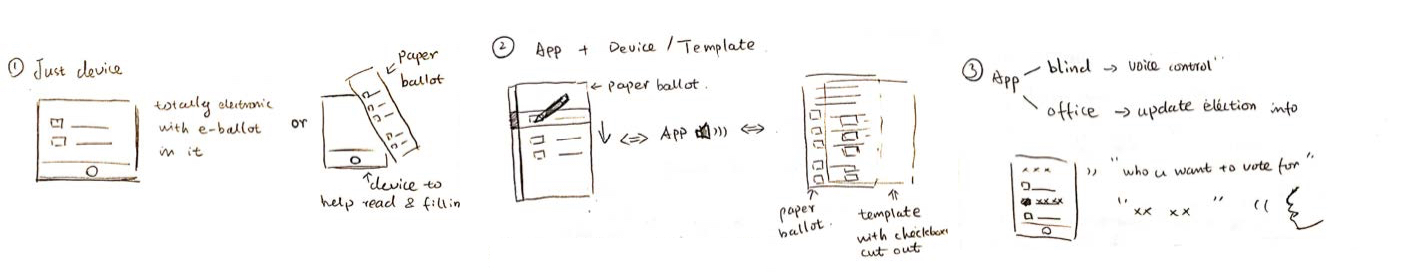 ① Just device
totally electronic
with e-ballot
in it
or
paper
ballot
device to
help read & fill in
② App + Device / Template
paper ballot.
App
paper
ballot.
template
with checkbox
cut out
③ App
blind → voice control
office → update election info
x x x
xxxx
"who u want to vote for"
"xx xx"